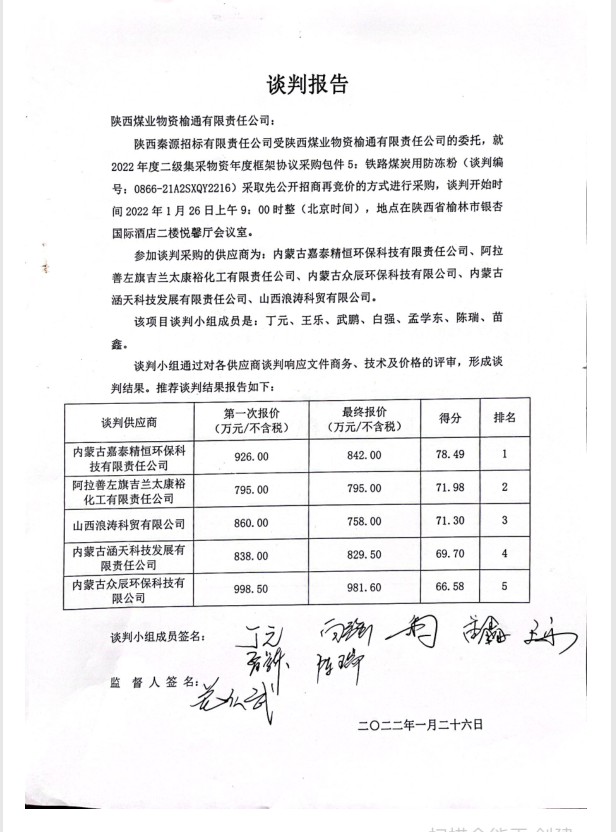 谈判报告
陕西煤业物资榆通有限责任公司：
陕西秦源招标有限责任公司受陕西煤业物资榆通有限责任公司的委托，就
2022 年度二级集采物资年度框架协议采购包件 5：铁路煤炭用防冻粉（谈判编
号：0866-21A2SXQY2216）采取先公开招商再竞价的方式进行采购，谈判开始时
间 2022 年 1 月 26 日上午 9：00 时整（北京时间），地点在陕西省榆林市银杏
国际酒店二楼悦馨厅会议室。
参加谈判采购的供应商为：内蒙古嘉泰精恒环保科技有限责任公司、阿拉
善左旗吉兰太康裕化工有限责任公司、内蒙古众辰环保科技有限公司、内蒙古
涵天科技发展有限责任公司、山西浪涛科贸有限公司。
该项目谈判小组成员是：丁元、王乐、武鹏、白强、孟学东、陈瑞、苗
鑫。
谈判小组通过对各供应商谈判响应文件商务、技术及价格的评审，形成谈
判结果。推荐谈判结果报告如下：
谈判供应商 第一次报价 最终报价 得分 排名
（万元/不含税） （万元/不含税）
内蒙古嘉泰精恒环保科
技有限责任公司 926.00 842.00 78.49 1
阿拉善左旗吉兰太康裕
化工有限责任公司 795.00 795.00 71.98 2
山西浪涛科贸有限公司 860.00 758.00 71.30 3
内蒙古涵天科技发展有
限责任公司 838.00 829.50 69.70 4
内蒙古众辰环保科技有
限公司 998.50 981.60 66.58 5
谈判小组成员签名： 丁元 白强 苗鑫 王乐
陈瑞
监 督 人 签 名：
二〇二二年一月二十六日